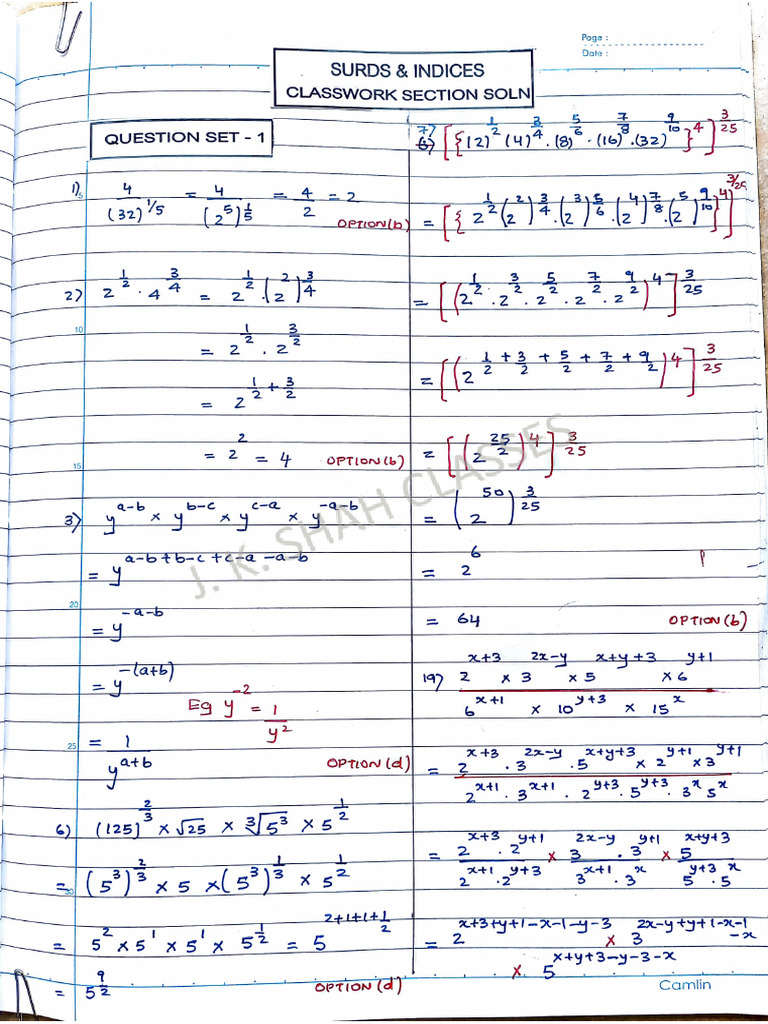 Page :
Date :
SURDS & INDICES
CLASSWORK SECTION SOLN
QUESTION SET - 1
1) 4/(32)^{1/5} = 4/(2^5)^{1/5} = 4/2 = 2
OPTION(b)
2) 2^{1/2} · 4^{3/4} = 2^{1/2} · (2^2)^{3/4}
= 2^{1/2} · 2^{3/2}
= 2^{1/2 + 3/2}
= 2^2 = 4 OPTION(b)
3) y^{a-b} × y^{b-c} × y^{c-a} × y^{-a-b}
= y^{a-b+b-c+c-a-a-b}
= y^{-a-b}
= y^{-(a+b)}
Eg y^{-2} = 1/y^2
= 1/y^{a+b} OPTION(d)
6) (125)^{2/3} × √25 × ∛5^3 × 5^{1/2}
= (5^3)^{2/3} × 5 × (5^3)^{1/3} × 5^{1/2}
= 5^2 × 5^1 × 5^1 × 5^{1/2} = 5^{2+1+1+1/2}
= 5^{9/2} OPTION(d)
7) [{(2)^{1/2} (4)^{3/4} · (8)^{5/6} · (16)^{7/8} · (32)^{9/10}}^4]^{3/25}
= [{2^{1/2} (2^2)^{3/4} · (2^3)^{5/6} · (2^4)^{7/8} · (2^5)^{9/10}}^4]^{3/25}
= [(2^{1/2} · 2^{3/2} · 2^{5/2} · 2^{7/2} · 2^{9/2})^4]^{3/25}
= [(2^{1/2 + 3/2 + 5/2 + 7/2 + 9/2})^4]^{3/25}
= [(2^{25/2})^4]^{3/25}
= (2^{50})^{3/25}
= 2^6
= 64 OPTION(b)
19) (2^{x+3} × 3^{2x-y} × 5^{x+y+3} × 6^{y+1})/(6^{x+1} × 10^{y+3} × 15^x)
= (2^{x+3} · 3^{2x-y} · 5^{x+y+3} × 2^{y+1} × 3^{y+1})/(2^{x+1} · 3^{x+1} · 2^{y+3} · 5^{y+3} · 3^x 5^x)
= (2^{x+3} · 2^{y+1})/(2^{x+1} · 2^{y+3}) × (3^{2x-y} · 3^{y+1})/(3^{x+1} · 3^x) × 5^{x+y+3}/(5^{y+3} · 5^x)
= 2^{x+3+y+1-x-1-y-3} × 3^{2x-y+y+1-x-1-x}
× 5^{x+y+3-y-3-x}
J. K. SHAH CLASSES
5
10
15
20
25
30
Camlin